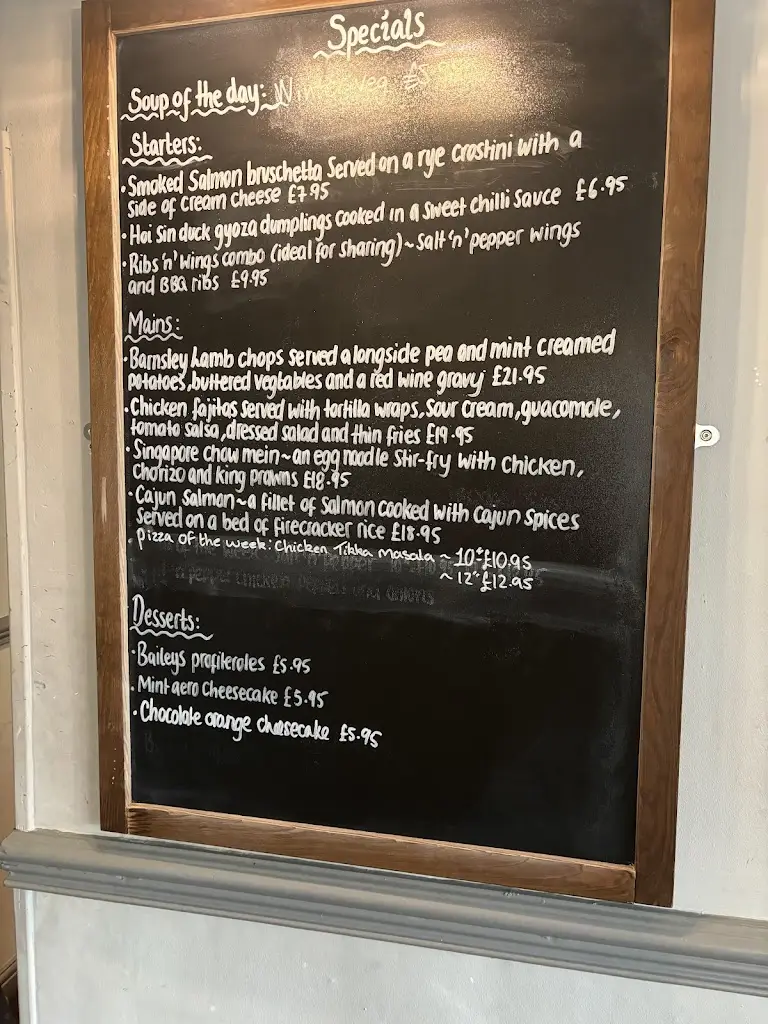 Specials
Soup of the day: Winter veg
Starters:
· Smoked Salmon bruschetta Served on a rye crostini with a
side of cream cheese £7.95
· Hoi Sin duck gyoza dumplings cooked in a sweet chilli Sauce £6.95
· Ribs 'n' wings combo (ideal for sharing) ~ Salt 'n' pepper wings
and BBQ ribs £9.95
Mains:
· Barnsley Lamb chops served alongside pea and mint creamed
potatoes, buttered vegtables and a red wine gravy £21.95
· Chicken fajitas served with tortilla wraps, sour cream, guacomole,
tomato salsa, dressed salad and thin fries £19.95
· Singapore chow mein ~ an egg noodle stir-fry with chicken,
chorizo and king prawns £18.95
· Cajun Salmon ~ a fillet of Salmon cooked with Cajun Spices
Served on a bed of firecracker rice £18.95
· Pizza of the week: Chicken Tikka Masala ~ 10" £10.95
~ 12" £12.95
Desserts:
· Baileys profileroles £5.95
· Mint aero Cheesecake £5.95
· Chocolate orange cheesecake £5.95